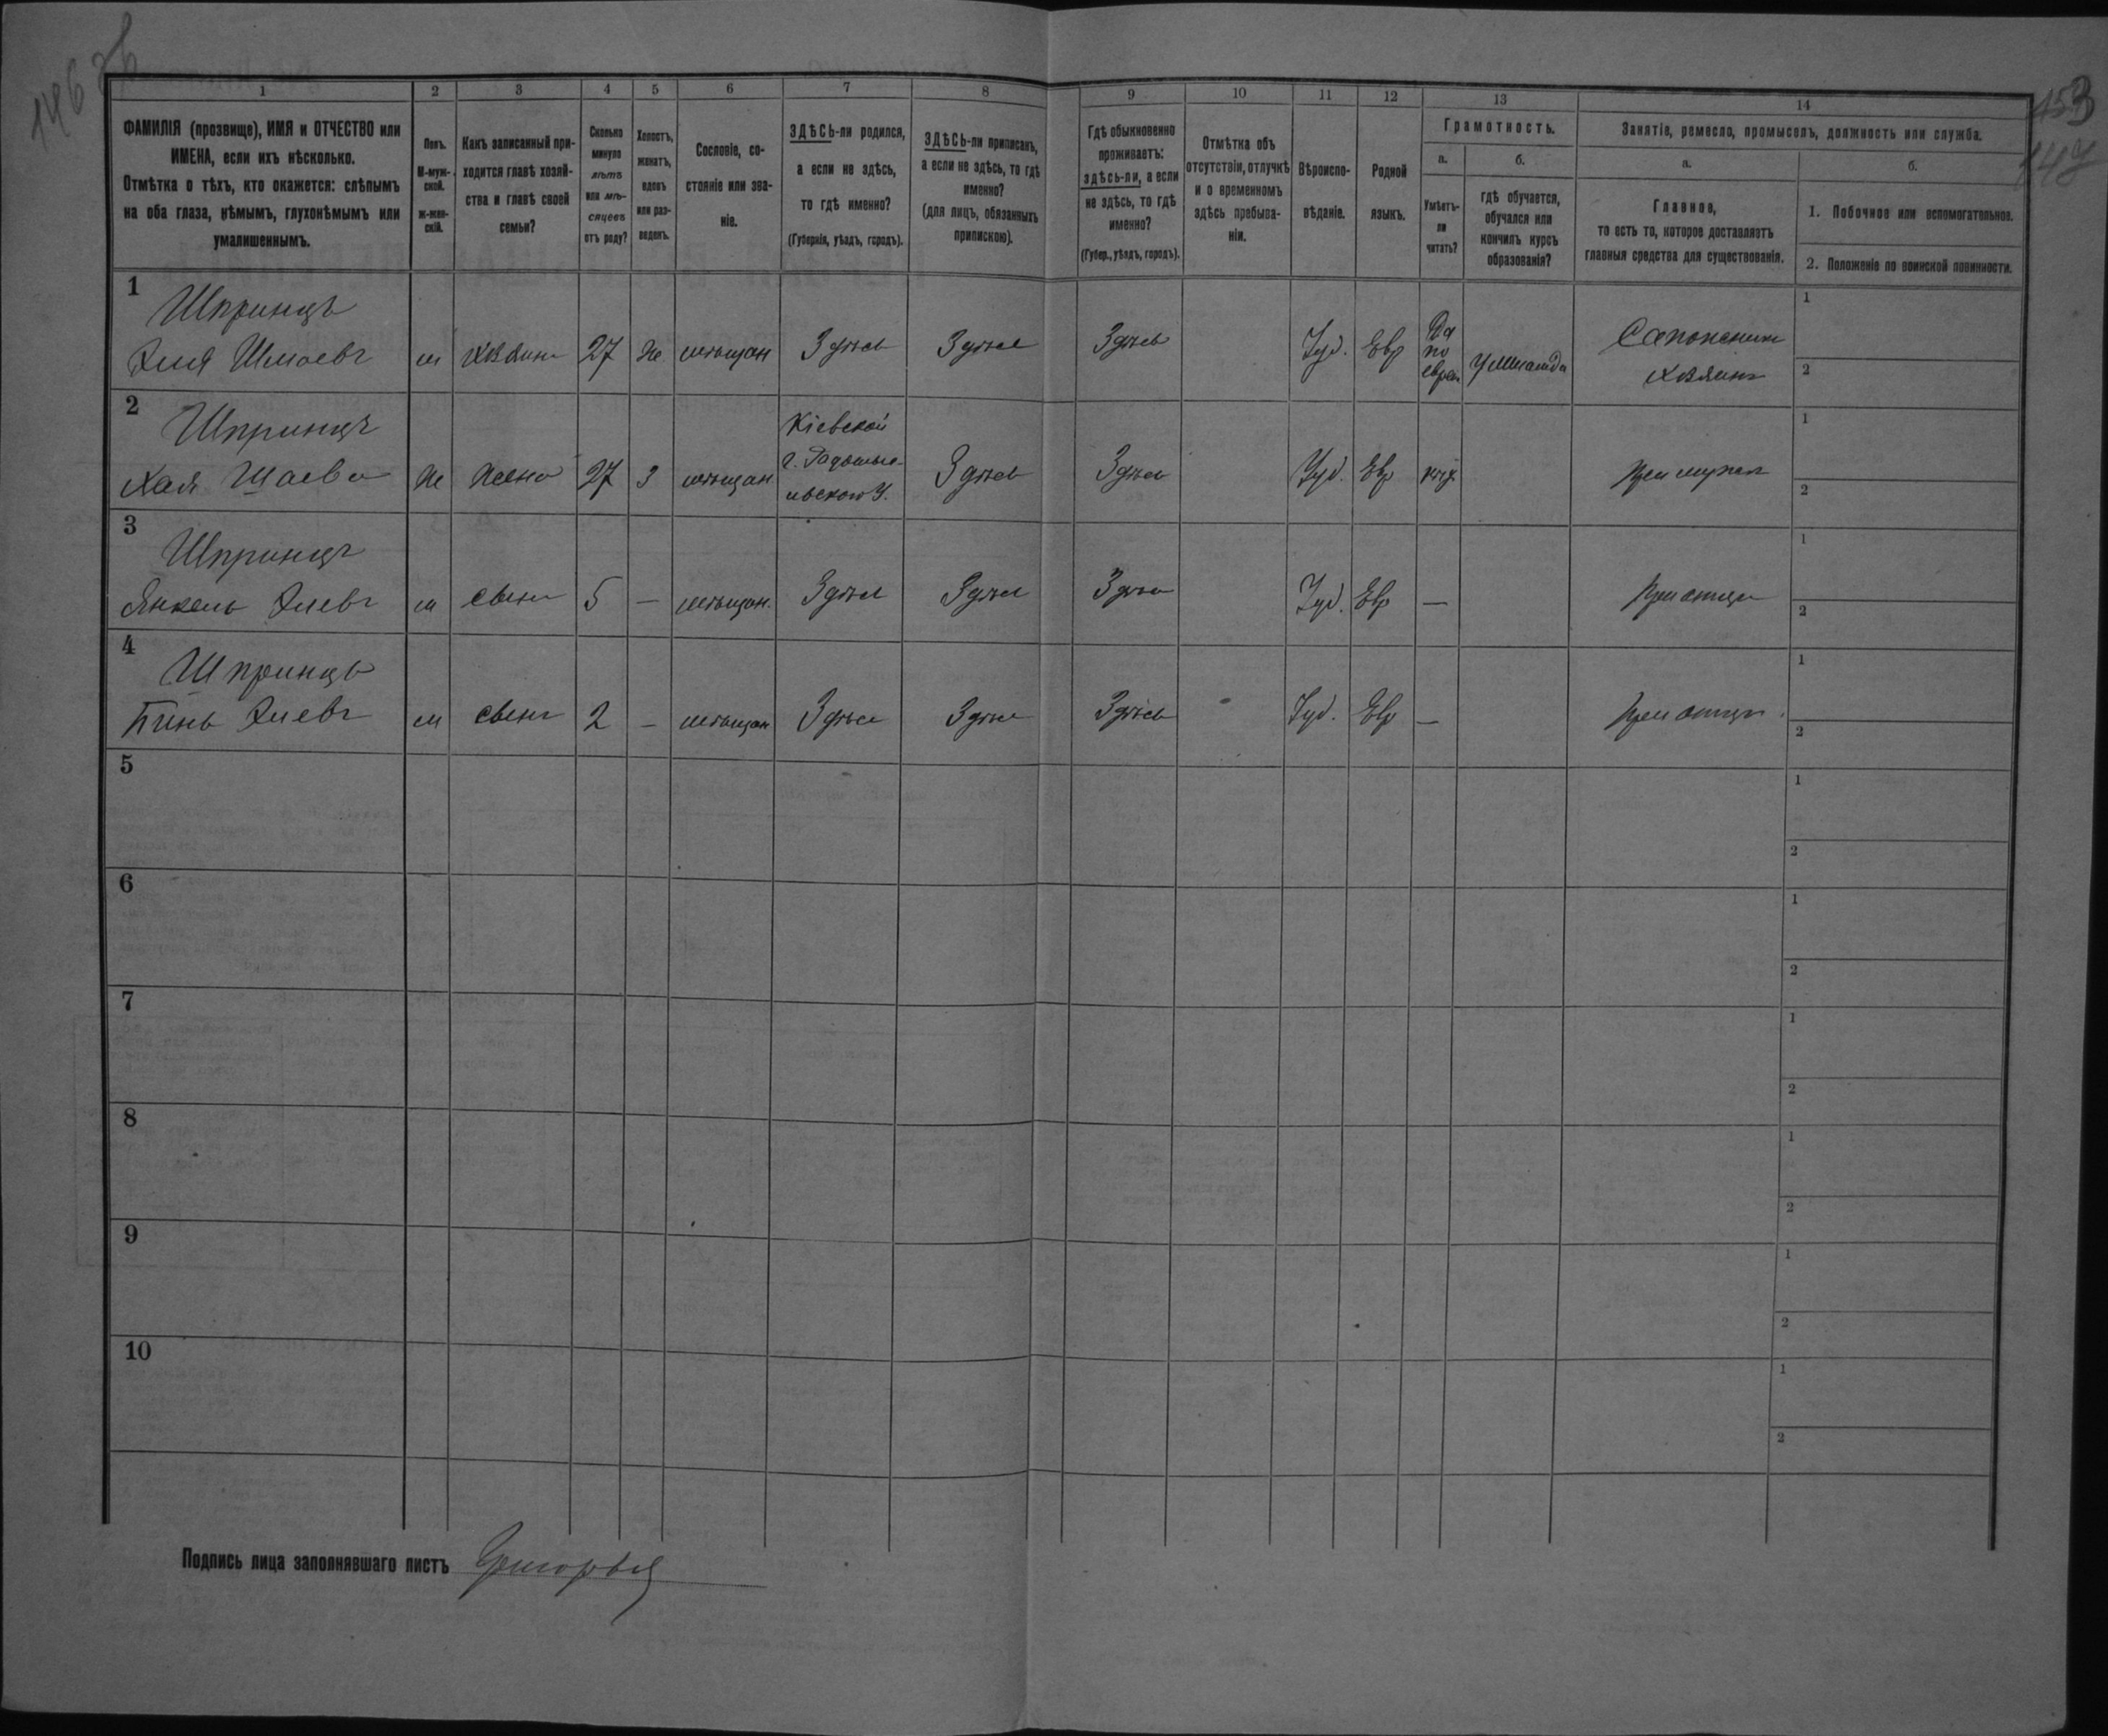 146 об
153
147
1
2
3
4
5
6
7
8
9
10
11
12
13
14
ФАМИЛІЯ (прозвище), ИМЯ и ОТЧЕСТВО или
ИМЕНА, если ихъ нѣсколько.
Отмѣтка о тѣхъ, кто окажется: слѣпымъ
на оба глаза, нѣмымъ, глухонѣмымъ или
умалишеннымъ.
Полъ.
М-муж-
ской.
ж-жен-
скій.
Какъ записанный при-
ходится главѣ хозяй-
ства и главѣ своей
семьи?
Сколько
минуло
лѣтъ
или мѣ-
сяцевъ
отъ роду?
Холостъ,
женатъ,
вдовъ
или раз-
веденъ.
Сословіе, со-
стояніе или зва-
ніе.
ЗДѢСЬ-ли родился,
а если не здѣсь,
то гдѣ именно?
(Губернія, уѣздъ, городъ).
ЗДѢСЬ-ли приписанъ,
а если не здѣсь, то гдѣ
именно?
(для лицъ, обязанныхъ
припискою).
Гдѣ обыкновенно
проживаетъ:
здѣсь-ли, а если
не здѣсь, то гдѣ
именно?
(Губер., уѣздъ, городъ).
Отмѣтка объ
отсутствіи, отлучкѣ
и о временномъ
здѣсь пребыва-
ніи.
Вѣроиспо-
вѣданіе.
Родной
языкъ.
Грамотность.
а.
Умѣетъ-
ли
читать?
б.
гдѣ обучается,
обучался или
кончилъ курсъ
образованія?
Занятіе, ремесло, промыселъ, должность или служба.
а.
Главное,
то есть то, которое доставляетъ
главныя средства для существованія.
б.
1. Побочное или вспомогательное.
2. Положеніе по воинской повинности.
1
Шпринцъ
Элія Шмаевъ м хозяинъ 27 Ж. мѣщан Здѣсь Здѣсь Здѣсь Іуд. Евр Да
по
еврей
у меламда
Сапожник
хозяинъ
1
2
2
Шпринцъ
Хая Шаева Ж жена 27 З мѣщан
Кіевской
г. Радомыс-
льского У.
Здѣсь Здѣсь Іуд. Евр нѣт При мужѣ
1
2
3
Шпринцъ
Янкель Эліевъ м сынъ 5 — мѣщан. Здѣсь Здѣсь Здѣсь Іуд. Евр — При отцѣ
1
2
4
Шпринцъ
Бинь Эліевъ м сынъ 2 — мѣщан Здѣсь Здѣсь Здѣсь Іуд. Евр — При отцѣ
1
2
5
1
2
6
1
2
7
1
2
8
1
2
9
1
2
10
1
2
Подпись лица заполнявшаго листъ